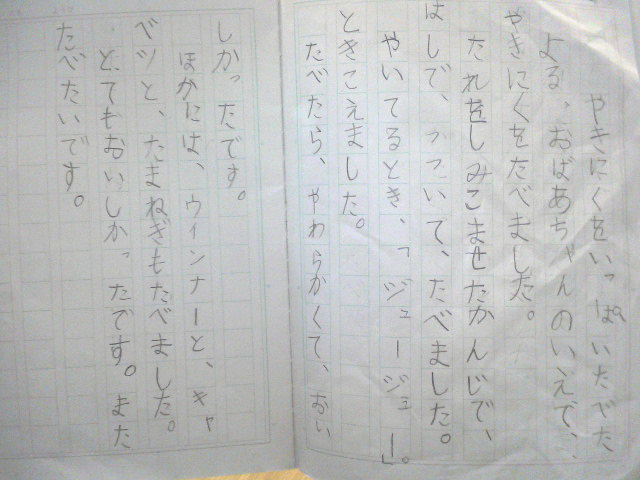 やきにくをいっぱいたべた
よる、おばあちゃんのいえで、
やきにくをたべました。
たれをしみこませたかんじで、
はしで、つついて、たべました。
やいてるとき、「ジュージュー」。
ときこえました。
たべたら、やわらかくて、おい
しかったです。
ほかには、ウィンナーと、キャ
ベツと、たまねぎもたべました。
とてもおいしかったです。また
たべたいです。